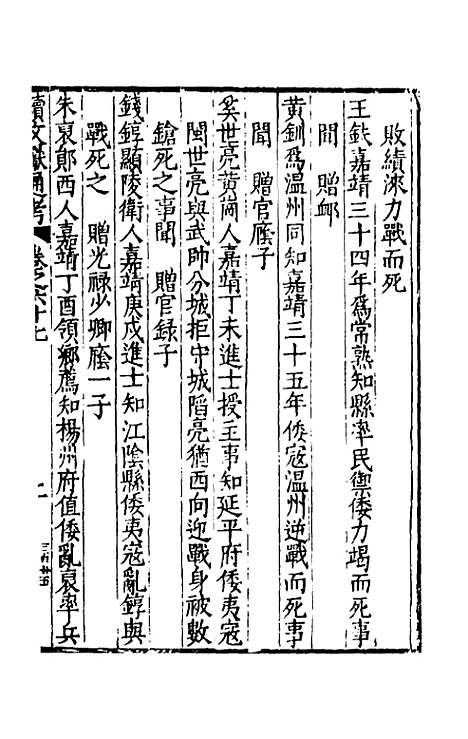 敗績深力戰而死
王鈇嘉靖三十四年爲常熟知縣率民禦倭力竭而死事
聞　贈卹
黃釧爲温州同知嘉靖三十五年倭寇温州逆戰而死事
聞　贈官廕子
奚世亮黃岡人嘉靖丁未進士授主事知延平府倭夷寇
閩世亮與武帥分城拒守城陷亮猶西向迎戰身被數
鎗死之事聞　贈官録子
錢錞顯陵衛人嘉靖庚戌進士知江陰縣倭夷寇亂錞與
戰死之　贈光禄少卿廕一子
朱裒鄖西人嘉靖丁酉領鄉薦知楊州府值倭亂裒率兵
續文獻通考　卷之六十七